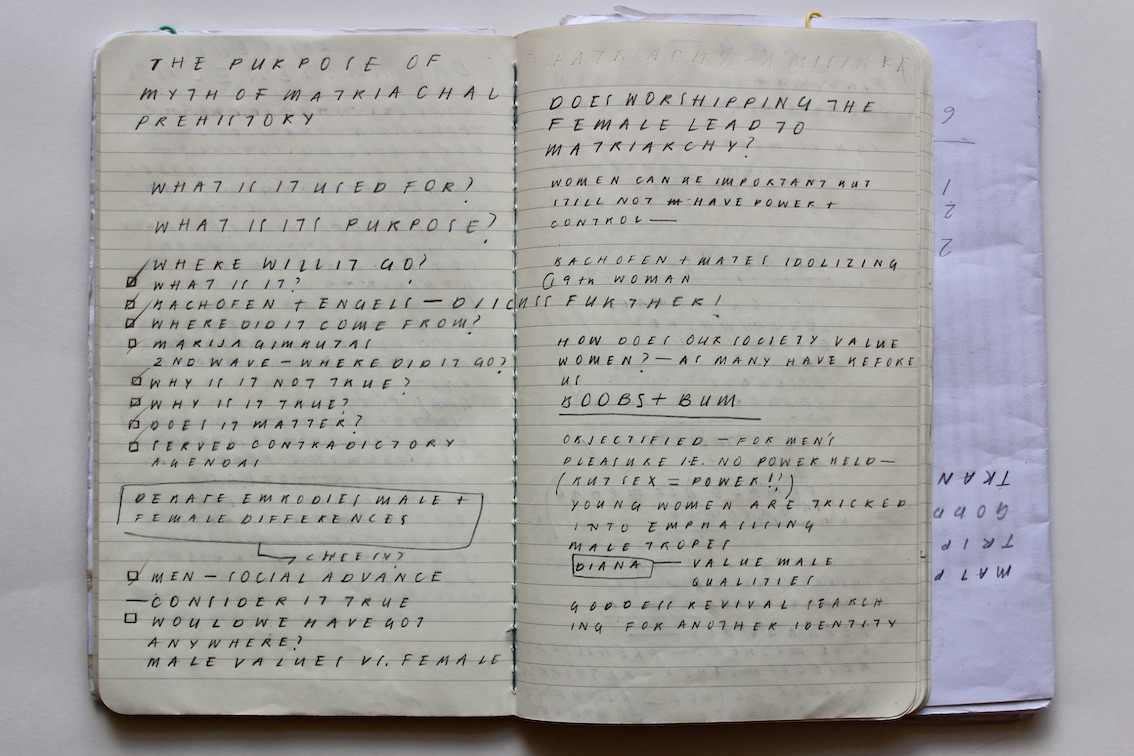 THE PURPOSE OF
MYTH OF MATRIACHAL
PREHISTORY
WHAT IS IT USED FOR?
WHAT IS ITS PURPOSE?
WHERE WILL IT GO?
WHAT IS IT?
BACHOFEN + ENGELS — DISCUSS FURTHER!
WHERE DID IT COME FROM?
MARIJA GIMBUTAS
2ND WAVE — WHERE DID IT GO?
WHY IS IT NOT TRUE?
WHY IS IT TRUE?
DOES IT MATTER?
SERVED CONTRADICTORY
AGENDAS
DEBATE EMBODIES MALE +
FEMALE DIFFERENCES
CHEESY?
MEN — SOCIAL ADVANCE
— CONSIDER IT TRUE
WOULD WE HAVE GOT
ANYWHERE?
MALE VALUES VS. FEMALE
PATRIACHY – A MISTAKE
DOES WORSHIPPING THE
FEMALE LEAD TO
MATRIARCHY?
WOMEN CAN BE IMPORTANT BUT
STILL NOT HAVE POWER +
CONTROL —
BACHOFEN + MATES IDOLIZING
19th WOMAN
HOW DOES OUR SOCIETY VALUE
WOMEN? — AS MANY HAVE BEFORE
US
BOOBS + BUM
OBJECTIFIED – FOR MEN'S
PLEASURE I.E. NO POWER HELD —
(BUT SEX = POWER!?)
YOUNG WOMEN ARE TRICKED
INTO EMPHASISING
MALE TROPES
DIANA — VALUE MALE
QUALITIES
GODDESS REVIVAL SEARCH
ING FOR ANOTHER IDENTITY
6
1
2
2
TRAN
GODD
TRIP
MATR